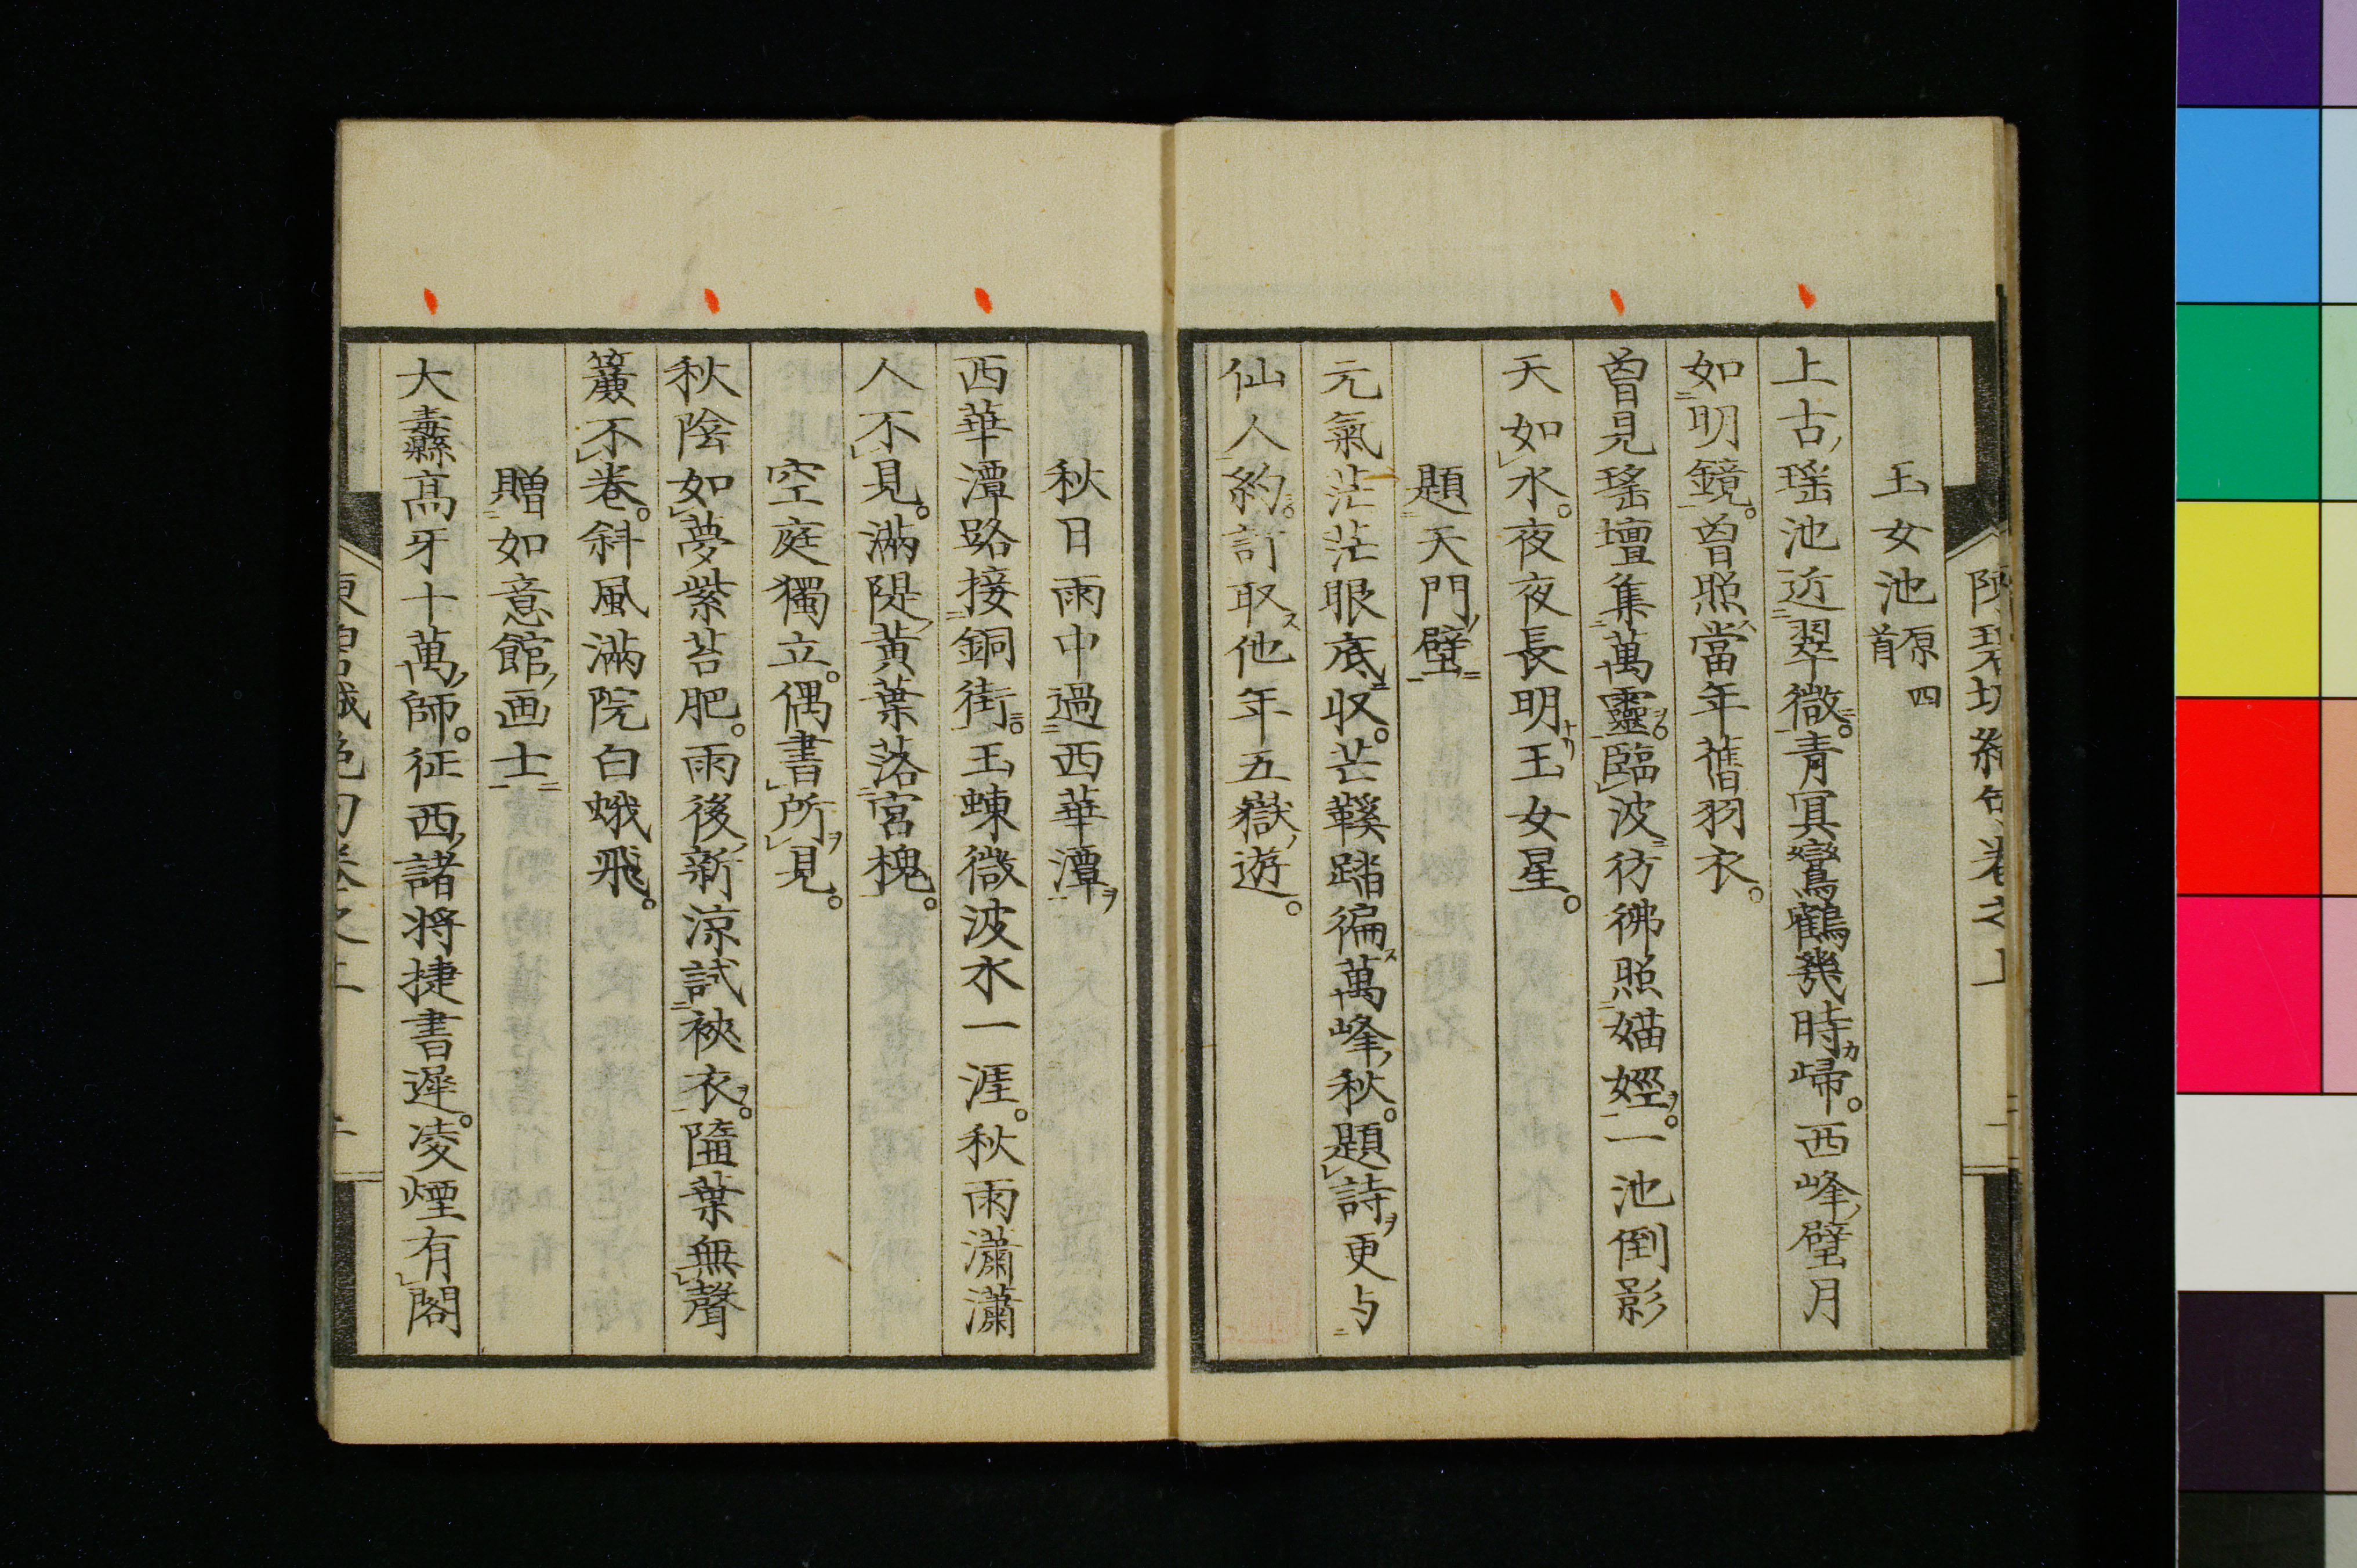 陳碧城絶句卷之上
一
玉女池原四首
上古瑶池近翠微。青冥鸞鶴幾時歸。西峰璧月
如明鏡。曾照當年舊羽衣。
曾見瑤壇集萬靈。臨波彷彿照媌娙。一池倒影
天如水。夜夜長明玉女星。
題天門壁
元氣茫茫眼底収。芒鞵踏徧萬峰秋。題詩更与
仙人約。訂取他年五嶽遊。
秋日雨中過西華潭
西華潭路接銅街。玉蝀微波水一涯。秋雨瀟瀟
人不見。滿隄黄葉落宮槐。
空庭獨立。偶書所見。
秋陰如夢紫苔肥。雨後新涼試裌衣。隨葉無聲
簾不卷。斜風滿院白蛾飛。
贈如意館画士
大纛高牙十萬師。征西諸將捷書遲。凌煙有閣
陳碧城絶句卷之上